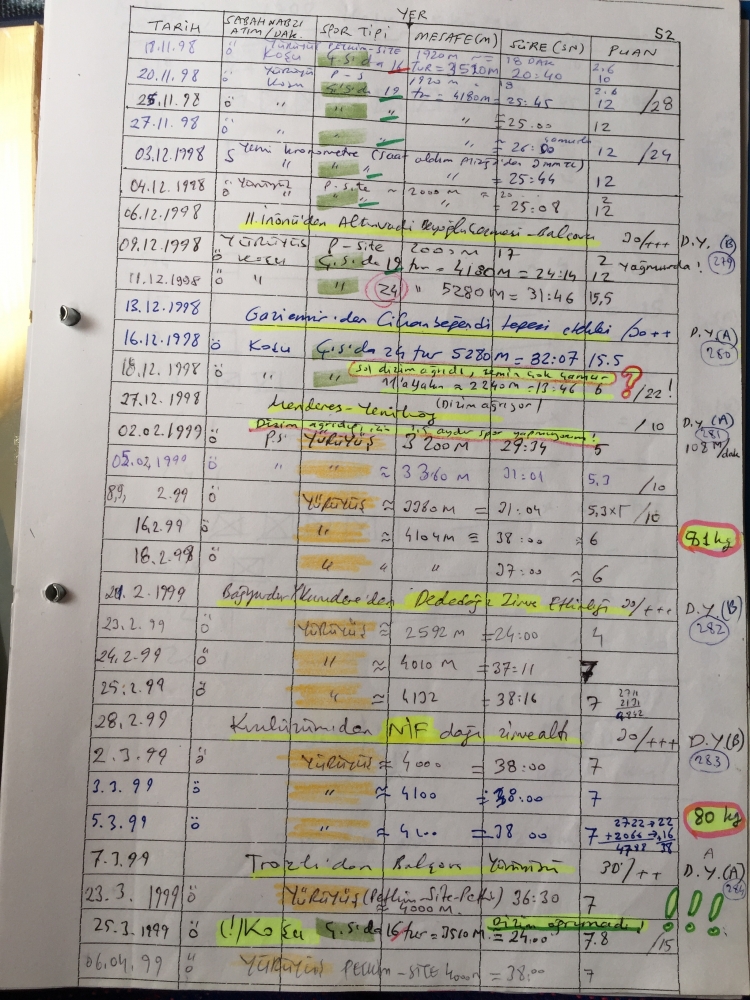 YER
52
TARİH SABAH NABZI ATIM/DAK. SPOR TİPİ MESAFE(M) SÜRE(SN) PUAN
18.11.98 ö Yürüyüş Petkim-Site 1920M 18 DAK 2.6
Koşu Ç.S.da 16 tur = 3510M 20:40 10
20.11.98 ö Yürüyüş P-S 1920M 18 2.6
Koşu Ç.S.da 19 tur = 4180M = 25:45 12 /28
25.11.98 ö " "
27.11.98 ö " " " = 25.00 12
" = 26:00 12 /24
03.12.1998 Yeni kronometre (saat aldım
" " " = 25:44 12
04.12.1998 ö Yürüyüş P-Site ≈ 2000M ≈ 20 2
" " = 25:08 12
06.12.1998 II. İnönü'den Altınvadi Balçova 20/+++ D.Y.(B)
09.12.1998 Yürüyüş P-Site 2000M 17 2 Yağmurda! 279
ö Koşu Ç.S.da 19 tur = 4180M = 24:14 12
11.12.1998 ö " " 24 " 5280M = 31:46 15,5
13.12.1998 Gaziemir'den Cihanbeğendi tepesi etkliği /20++ D.Y(A)
16.12.1998 ö Koşu Ç.S.da 24 tur 5280M = 32:07 15.5 280
18.12.1998 ö " " Sol dizim ağrıdı, zemin çok çamur
≈ 2240M = 13:46 6 ? /22!
27.12.1998 Menderes-Yeniköy (Dizim ağrıyor) /10 D.Y(A)
Dizim ağrıdığı için 1,5 aydır spor yapmıyorum! 281
02.02.1999 ö P.S YÜRÜYÜŞ 3200M 29:34 5 108 M/dak
05.02.1999 ö " " ≈ 3360M 31:01 5,3 /10
8,9, 2.99 ö YÜRÜYÜŞ ≈ 3380M = 31:04 5,3x2 /16
16.2.99 ö " ≈ 4104M = 38:00 ≈ 6 81 kg
18.2.98 ö " " " 37:00 ≈ 6
21.2.1999 Dededağı Zirve Etkinliği 20/+++ D.Y.(B)
282
23.2.99 ö YÜRÜYÜŞ ≈ 2592M = 24:00 4
24.2.99 ö " ≈ 4010M = 37:11 7
25.2.99 ö " ≈ 4132 = 38:16 7 2711
2131
4842
28.2.99 NİF dağı zirve altı 20/+++ D.Y(B)
283
2.3.99 ö YÜRÜYÜŞ ≈ 4000 = 38:00 7
3.3.99 ö " ≈ 4100 = 38:00 7
5.3.99 ö " ≈ 4100 = 38 00 7 2722→22 80 kg
+2066→,16
4788 38
7.3.99 Balçova Yürüyüşü 30/++ A
D.Y.(A)
284
23.3.1999 ö YÜRÜYÜŞ (Petkim-Site-Petk) 36:30 7 !!!
≈ 4000M.
25.3.1999 ö (!) Koşu Ç.S.da 16 tur = 3510M = 24:00 Dizim ağrımadı! 7.8 /15
06.04.99 ö YÜRÜYÜŞ PETKİM-SİTE 4000M = 38:00 7